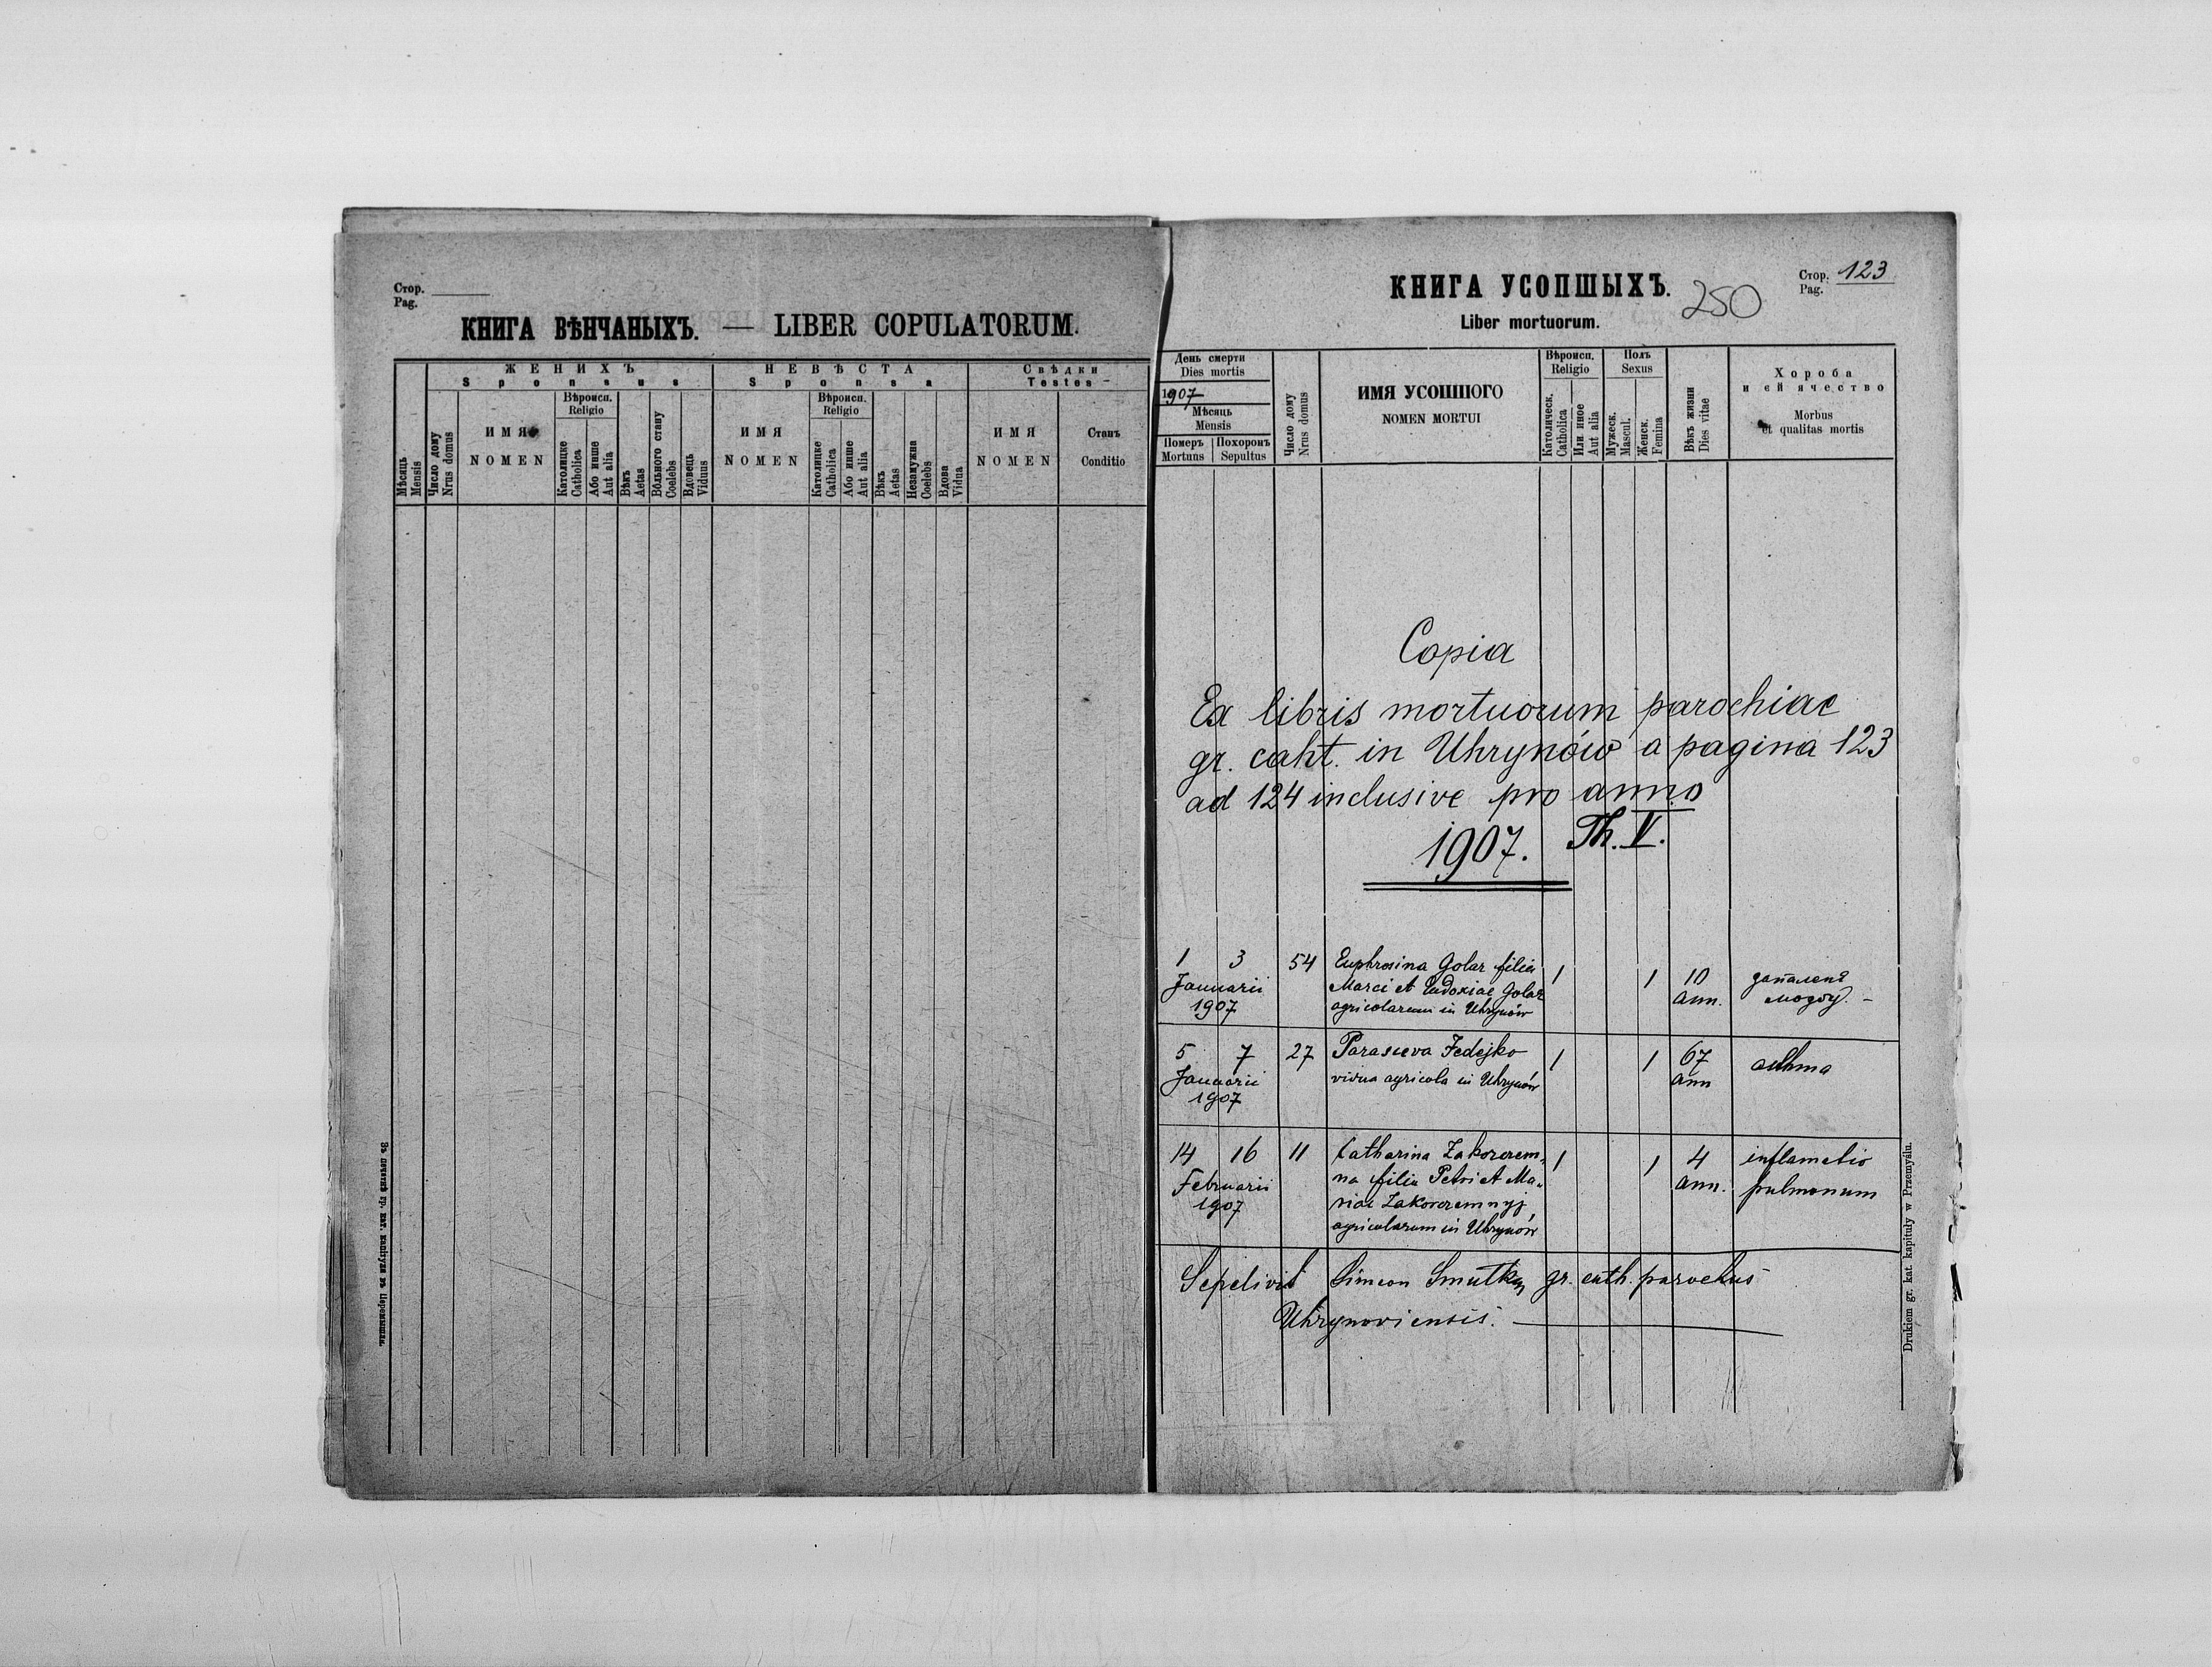 Стор.
Pag.
КНИГА ВѢНЧАНЫХЪ. — LIBER COPULATORUM.
Мѣсяць
Mensis
Число дому
Nrus domus
ЖЕНИХЪ
Sponsus
ИМЯ
NOMEN
Вѣроисп.
Religio
Католицке
Catholica
Або инше
Aut alia
Вѣкъ
Aetas
Вôльного стану
Coelebs
Вдовець
Viduus
НЕВѢСТА
Sponsa
ИМЯ
NOMEN
Вѣроисп.
Religio
Католицке
Catholica
Або инше
Aut alia
Вѣкъ
Aetas
Незамужна
Coelebs
Вдова
Vidua
Свѣдки
Testes
ИМЯ
NOMEN
Станъ
Conditio
Зъ печатнѣ гр. кат. капітулы въ Перемышли.
КНИГА УСОПШЫХЪ.
Liber mortuorum.
250
Стор. 123
Pag.
День смерти
Dies mortis
1907
Мѣсяць
Mensis
Померъ
Mortuus
Похоронъ
Sepultus
Число дому
Nrus domus
ИМЯ УСОПШОГО
NOMEN MORTUI
Вѣроисп.
Religio
Католическ.
Catholica
Или иное
Aut alia
Полъ
Sexus
Мужеск.
Mascul.
Женск.
Femina
Вѣкъ жизни
Dies vitae
Хороба
и єй ячество
Morbus
et qualitas mortis
Copia
Ex libris mortuorum parochiae
gr. caht. in Uhrynów a pagina 123
ad 124 inclusive pro anno
1907. Th. V.
1 3 54 Euphrosina Golar filia 1 1 10 запаленя
Januarii Marci et Eudoxiae Golar ann. мозгу. –
1907 agricolarum in Uhrynów
5 7 27 Parasceva Fedejko 1 1 67 asthma
Januarii vidua agricola in Uhrynów ann
1907
14 16 11 Catharina Zakorcrem- 1 1 4 inflamatio
Februarii na filia Petri et Ma- ann. pulmonum
1907 riae Zakorcremnyj,
agricolarum in Uhrynów
Sepelivit Simeon Smutky gr. cath. parochus
Uhrynoviensis.
Drukiem gr. kat. kapituły w Przemyślu.